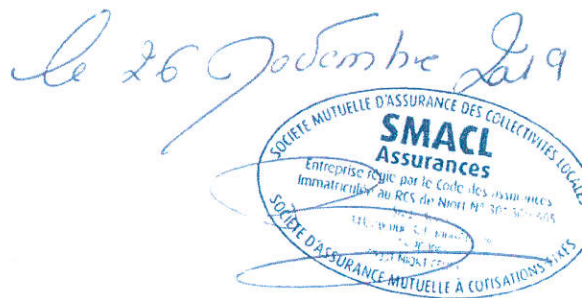 le 26 Novembre 2019
SOCIÉTÉ MUTUELLE D'ASSURANCE DES COLLECTIVITÉS LOCALES
SMACL
Assurances
Entreprise régie par le Code des assurances
Immatriculée au RCS de Niort N° 301 309 605
SOCIÉTÉ D'ASSURANCE MUTUELLE À COTISATIONS FIXES